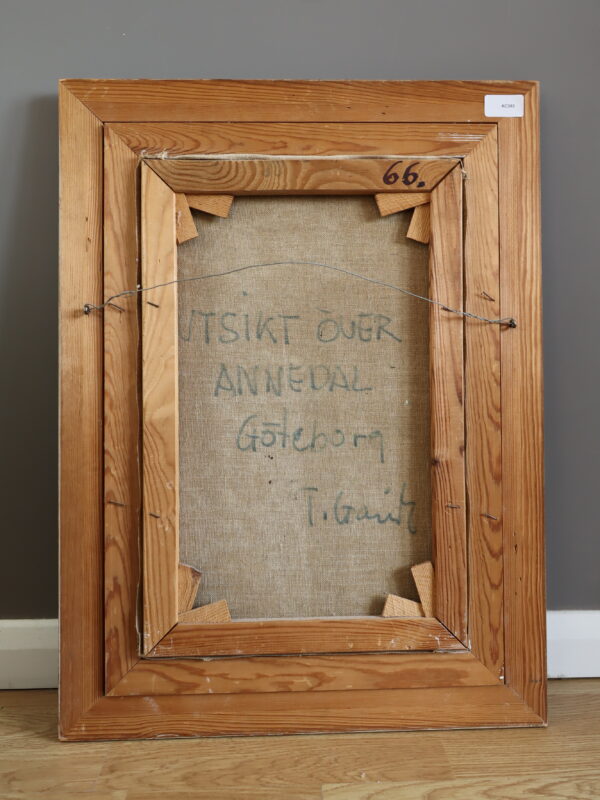 66.
UTSIKT ÖVER
ANNEDAL
Göteborg
T.